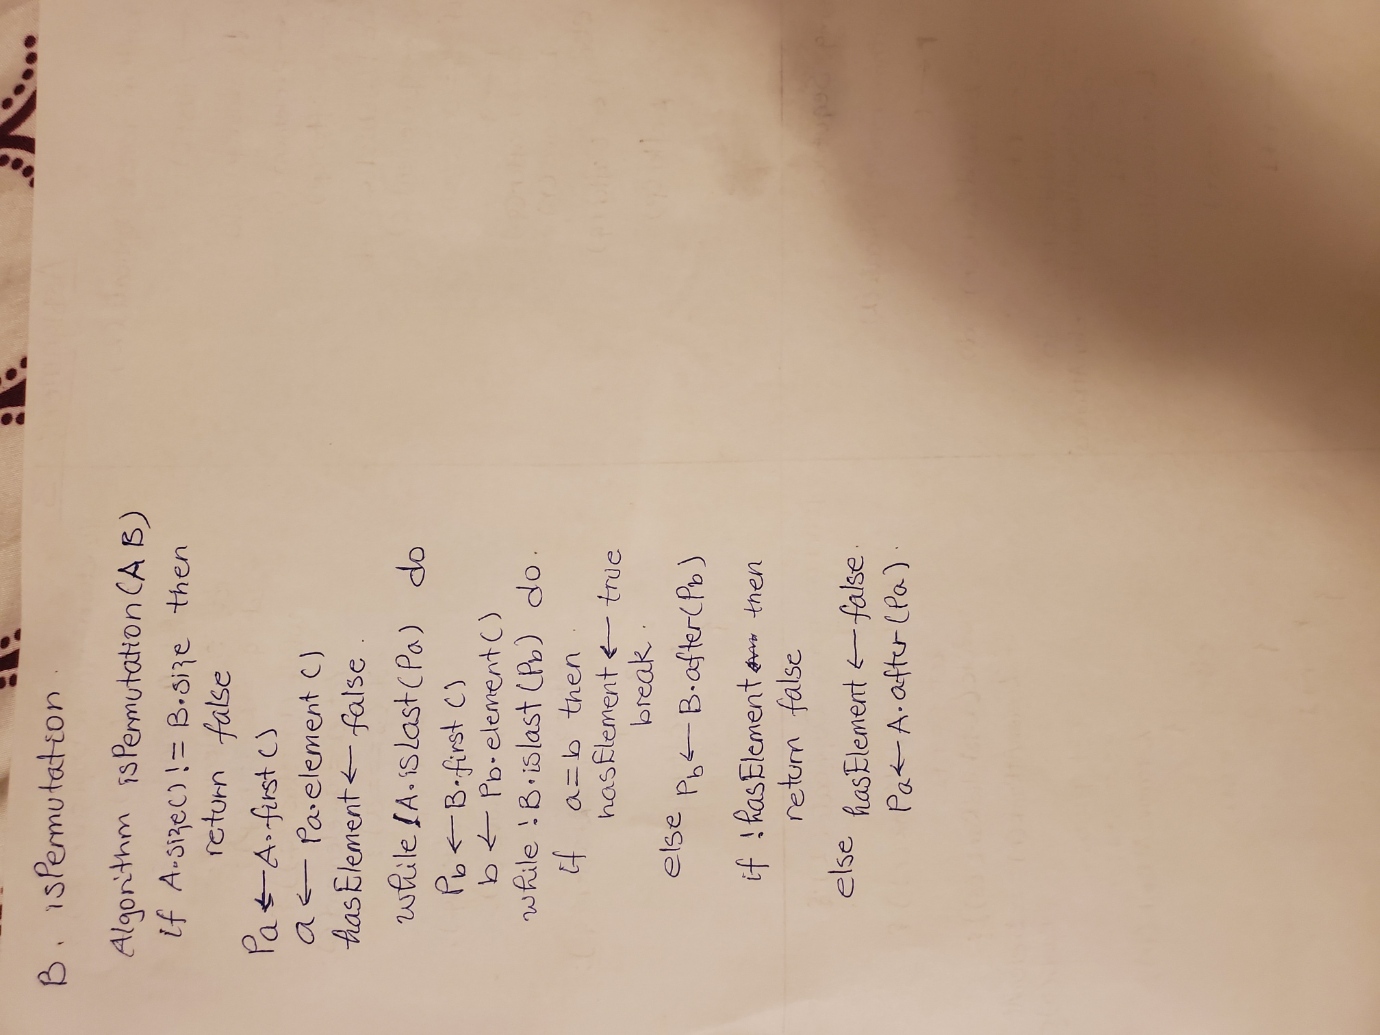 B. isPermutation.
Algorithm isPermutation(A B)
if A.size() != B.size then
return false
Pa ← A.first()
a ← Pa.element()
hasElement ← false.
while !A.isLast(Pa) do
Pb ← B.first()
b ← Pb.element()
while !B.islast(Pb) do.
if a=b then
hasElement ← true
break.
else
Pb ← B.after(Pb)
if !hasElement then
return false
else
hasElement ← false.
Pa ← A.after(Pa).